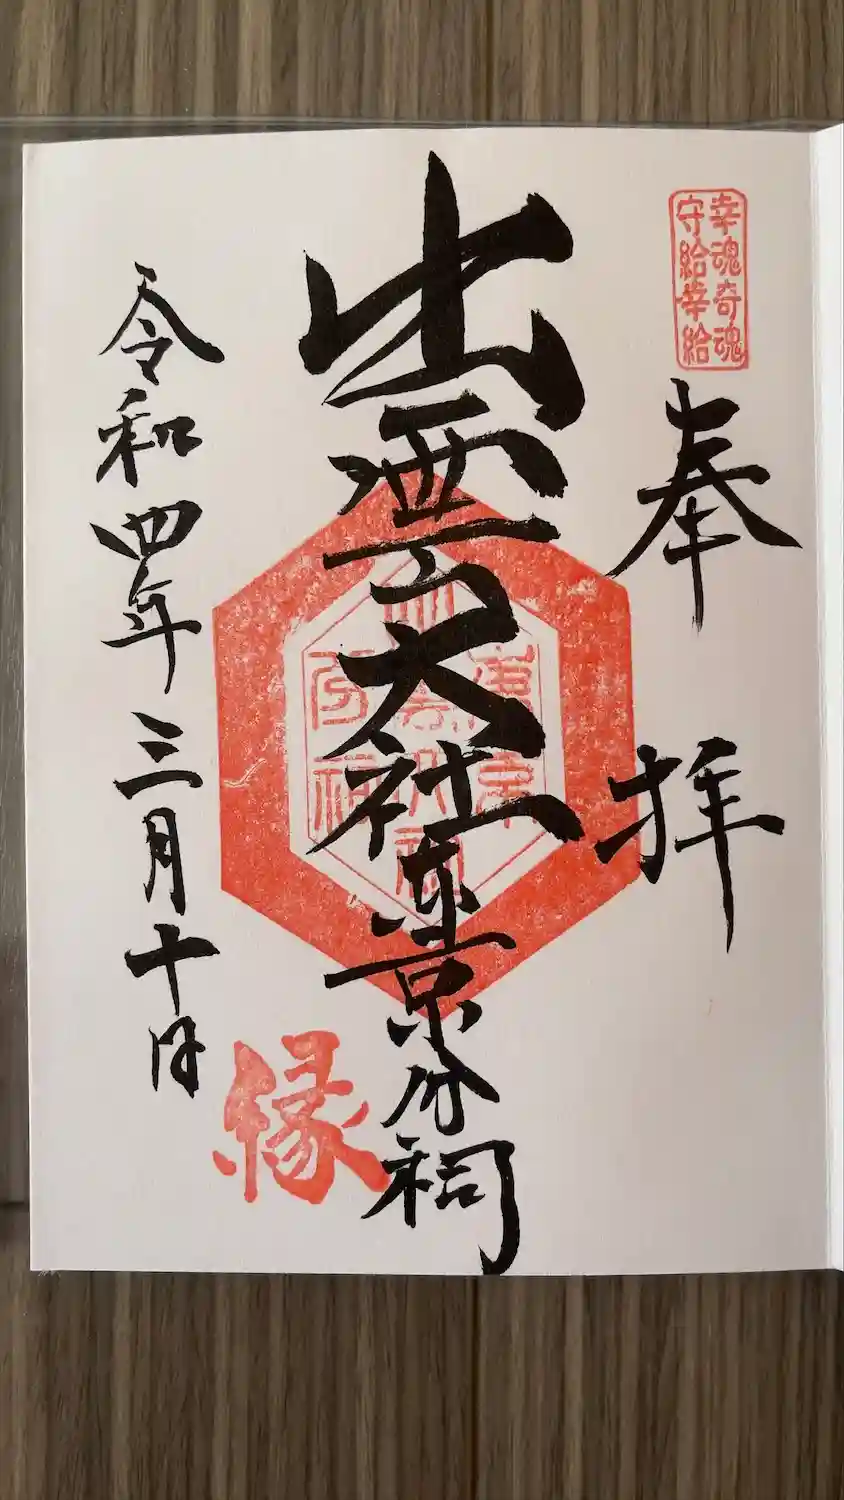 幸魂奇魂
守給幸給
奉拝
出雲大社東京分祠
縁
令和四年三月十日